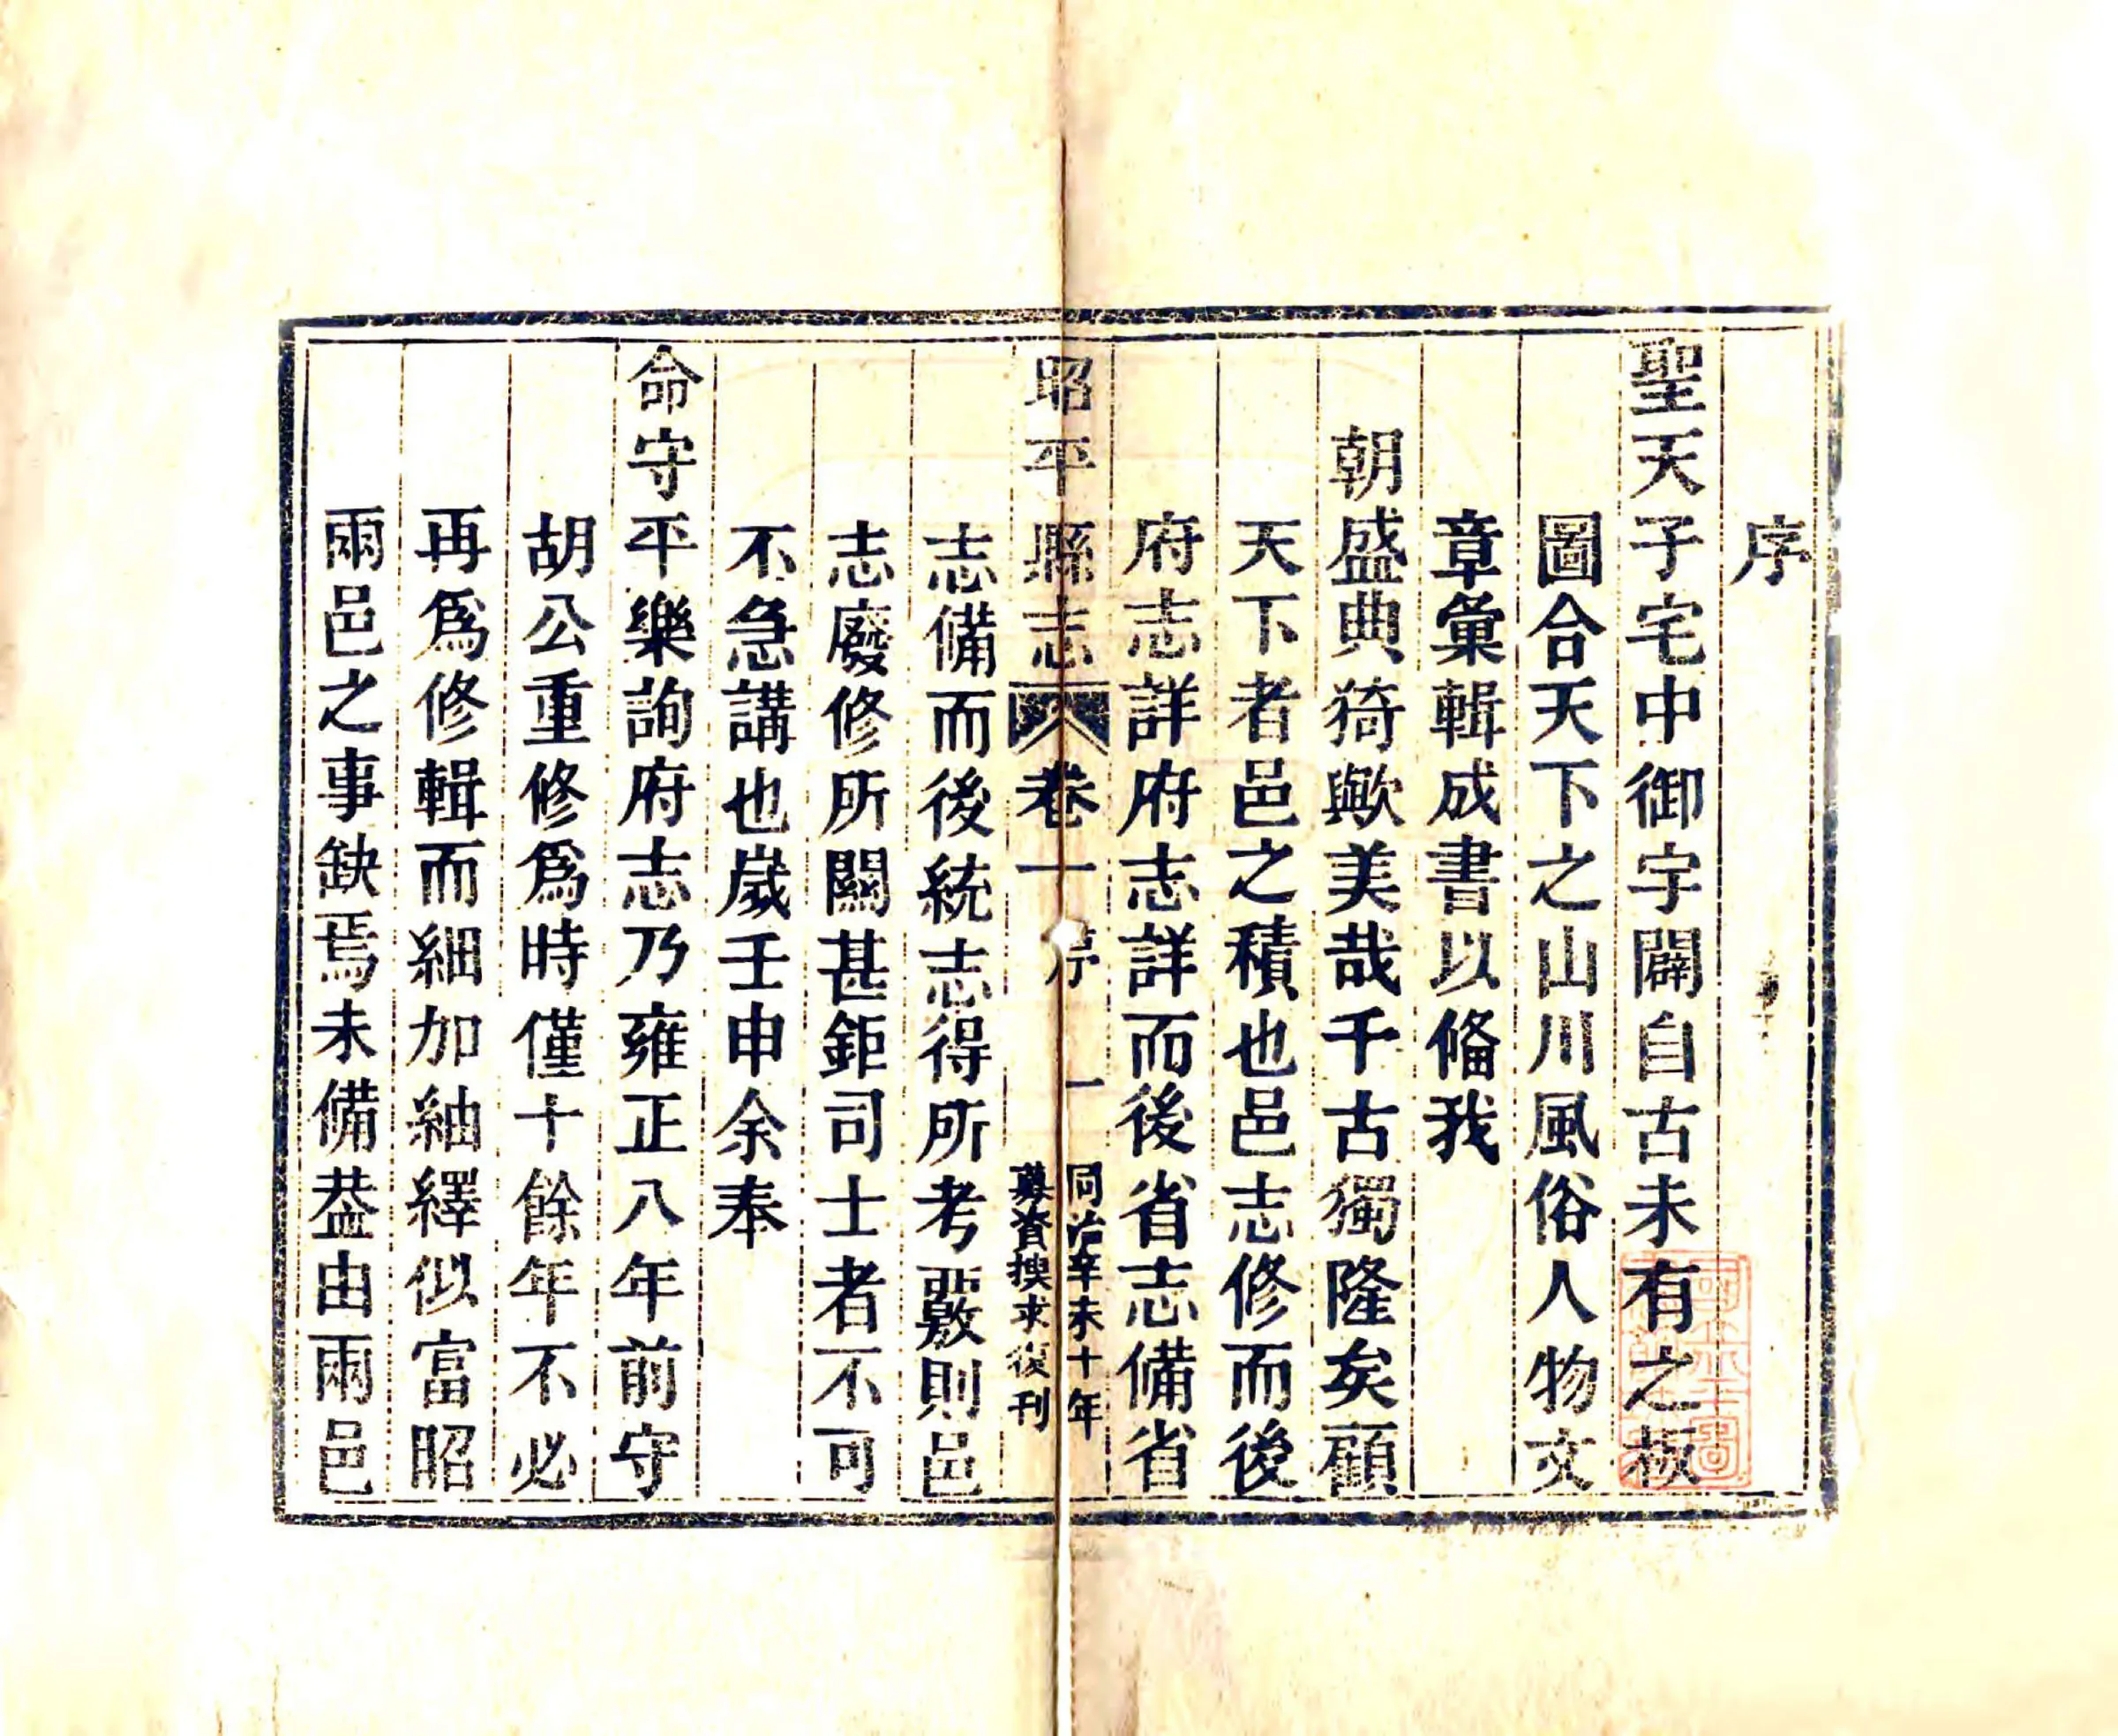 序
聖天子宅中御宇闢自古未有之板
圖合天下之山川風俗人物文
章彙輯成書以俻我
朝盛典猗歟美哉千古獨隆矣顧
天下者邑之積也邑志修而後
府志詳府志詳而後省志備省
昭平縣志 卷一 序 一 同治辛未十年
募資搜求復刊
志備而後統志得所考覈則邑
志廢修所關甚鉅司士者不可
不急講也嵗壬申余奉
命守平樂詢府志乃雍正八年前守
胡公重修爲時僅十餘年不必
再爲修輯而細加紬繹似富昭
兩邑之事缺焉未備葢由兩邑